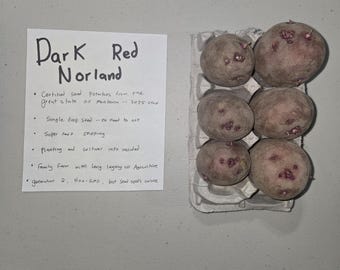 Dark Red
Norland
• Certified seed potatoes from the
great state of Montana -- 2025 crop
• Single drop seed -- no need to cut
• Super fast shipping
• Planting and cultivar info included
• Family Farm with long legacy of Agriculture
• generation 2, Non-GMO,